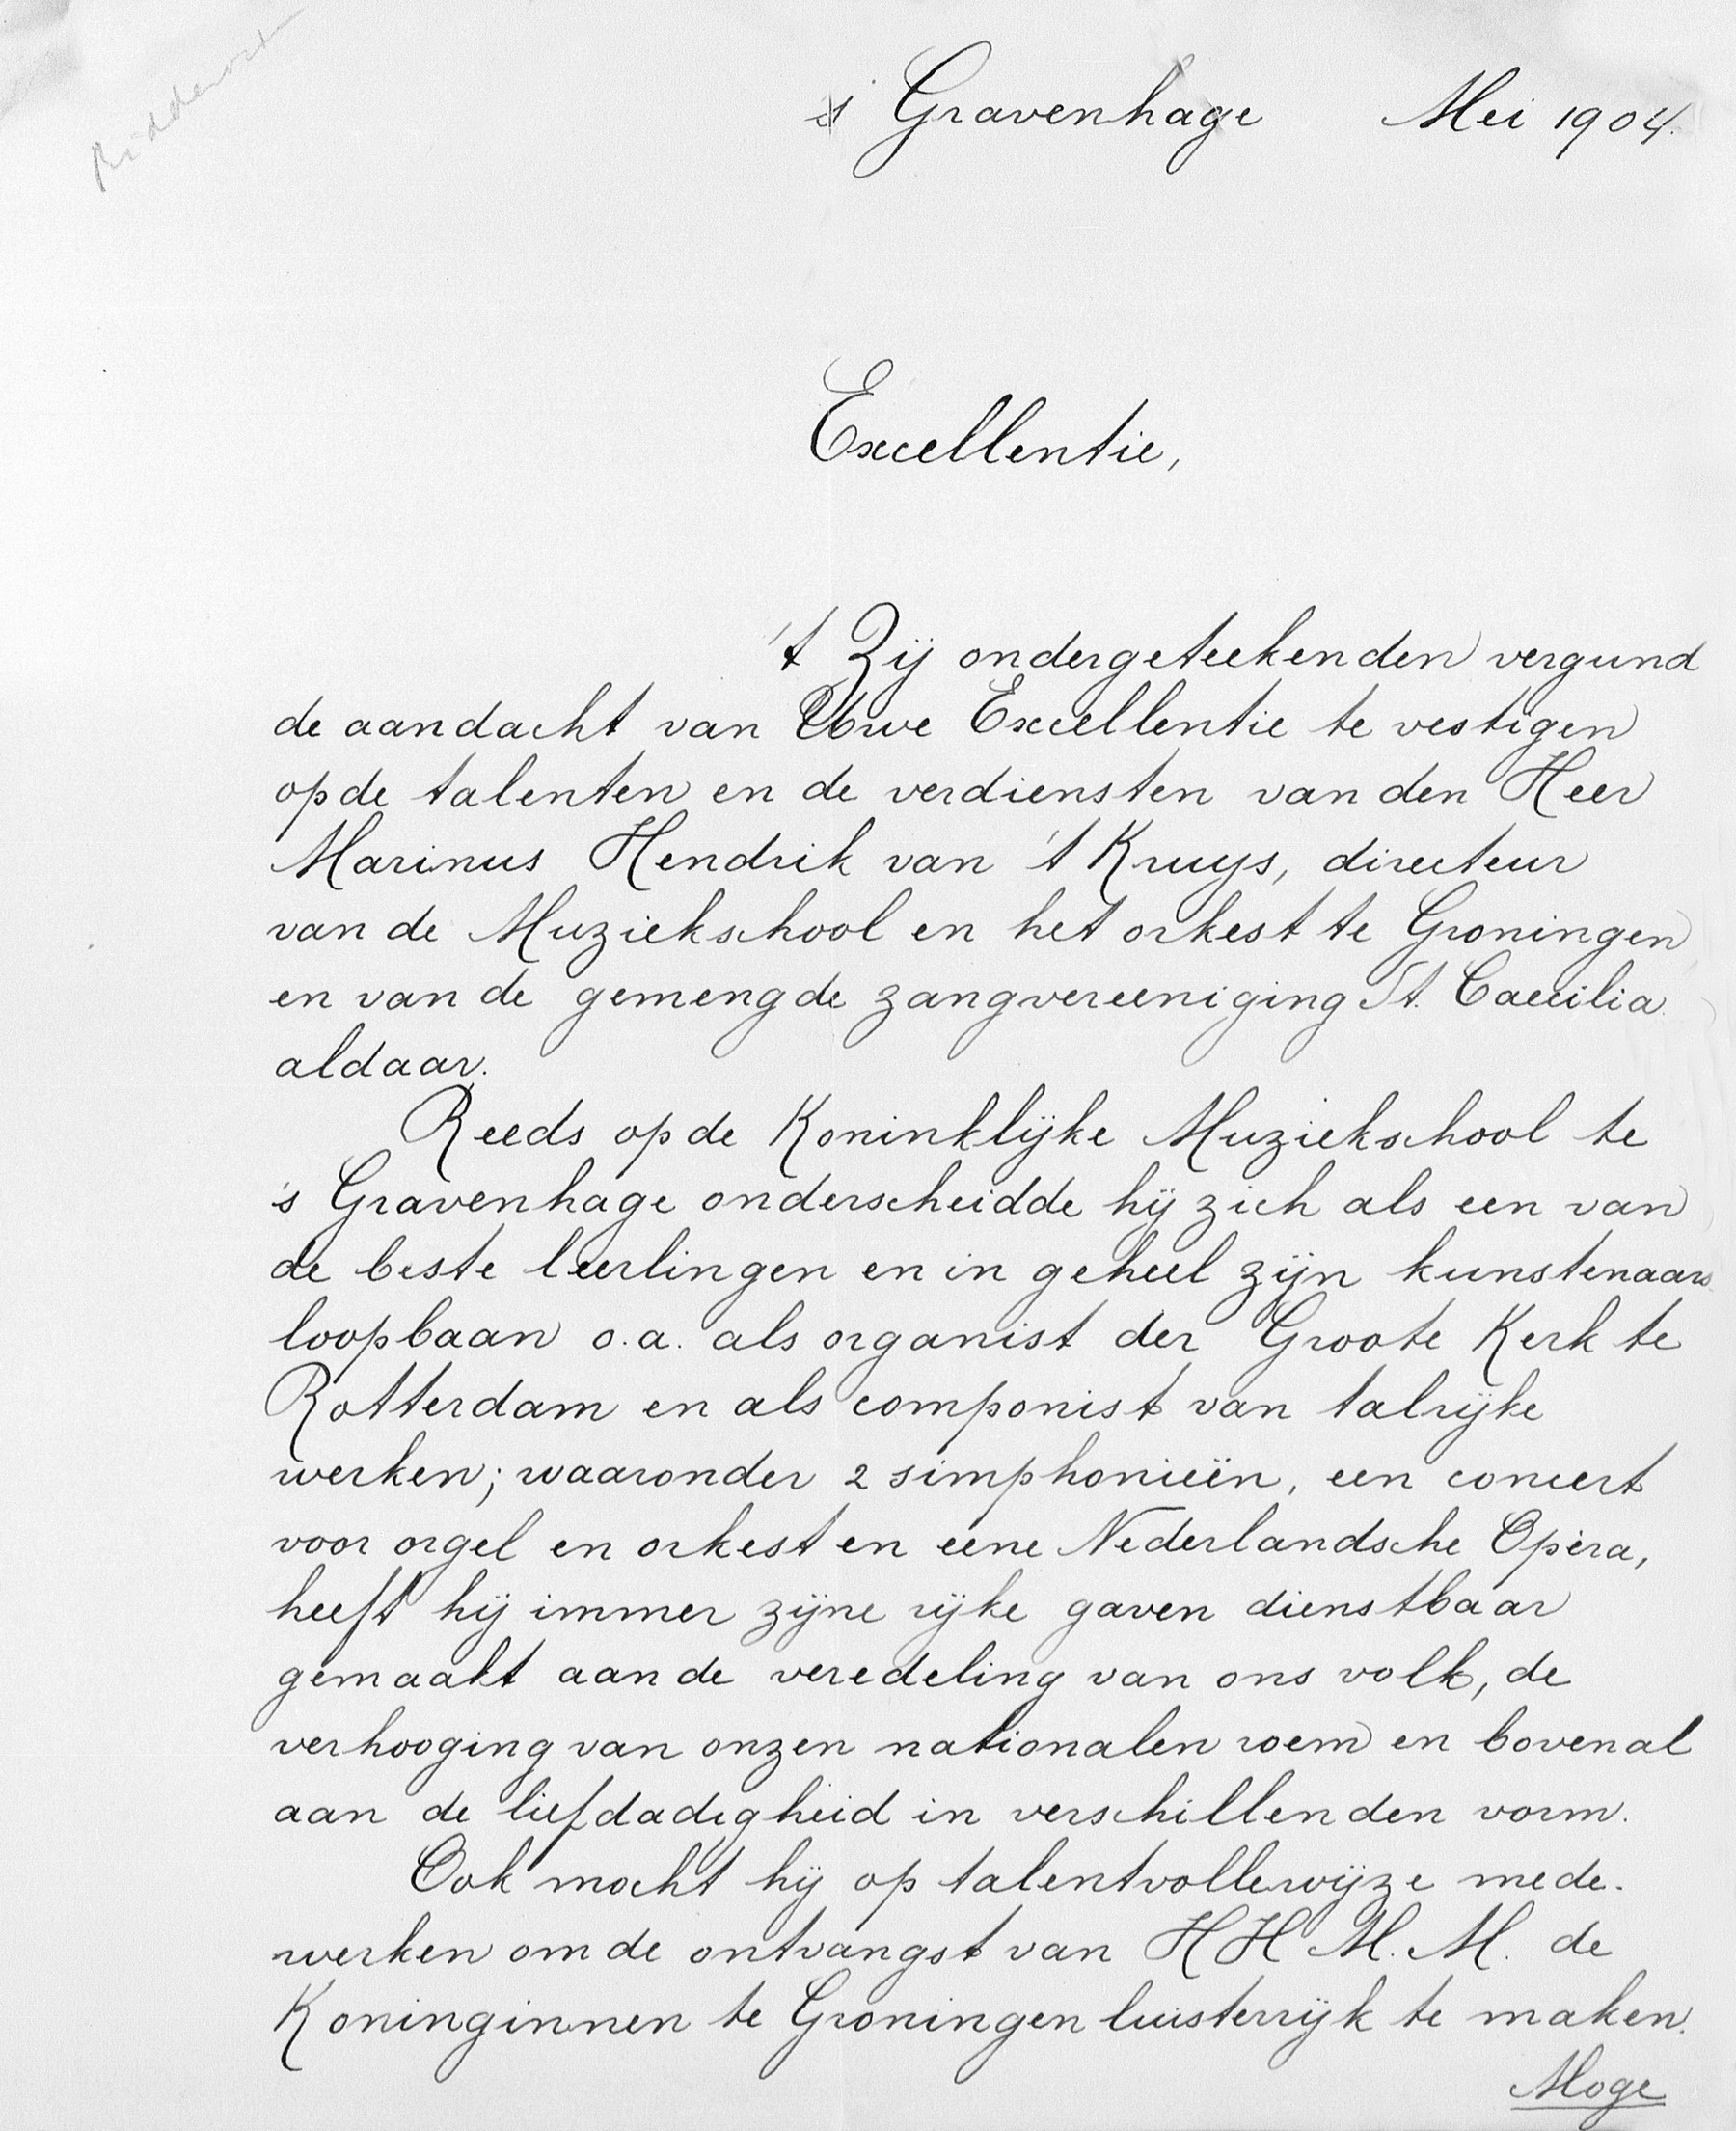 's Gravenhage Mei 1904.
Excellentie,
't Zij ondergeteekenden vergund
de aandacht van Uwe Excellentie te vestigen
op de talenten en de verdiensten van den Heer
Marinus Hendrik van 't Kruys, directeur
van de Muziekschool en het orkest te Groningen
en van de gemengde zangvereeniging St. Caecilia
aldaar.
Reeds op de Koninklijke Muziekschool te
's Gravenhage onderscheidde hij zich als een van
de beste leerlingen en in geheel zijn kunstenaars
loopbaan o.a. als organist der Groote Kerk te
Rotterdam en als componist van talrijke
werken; waaronder 2 simphonieën, een concert
voor orgel en orkest en eene Nederlandsche Opera,
heeft hij immer zijne rijke gaven dienstbaar
gemaakt aan de veredeling van ons volk, de
verhooging van onzen nationalen roem en bovenal
aan de liefdadigheid in verschillenden vorm.
Ook mocht hij op talentvolle wijze mede-
werken om de ontvangst van HH M.M. de
Koninginnen te Groningen luisterrijk te maken.
Moge